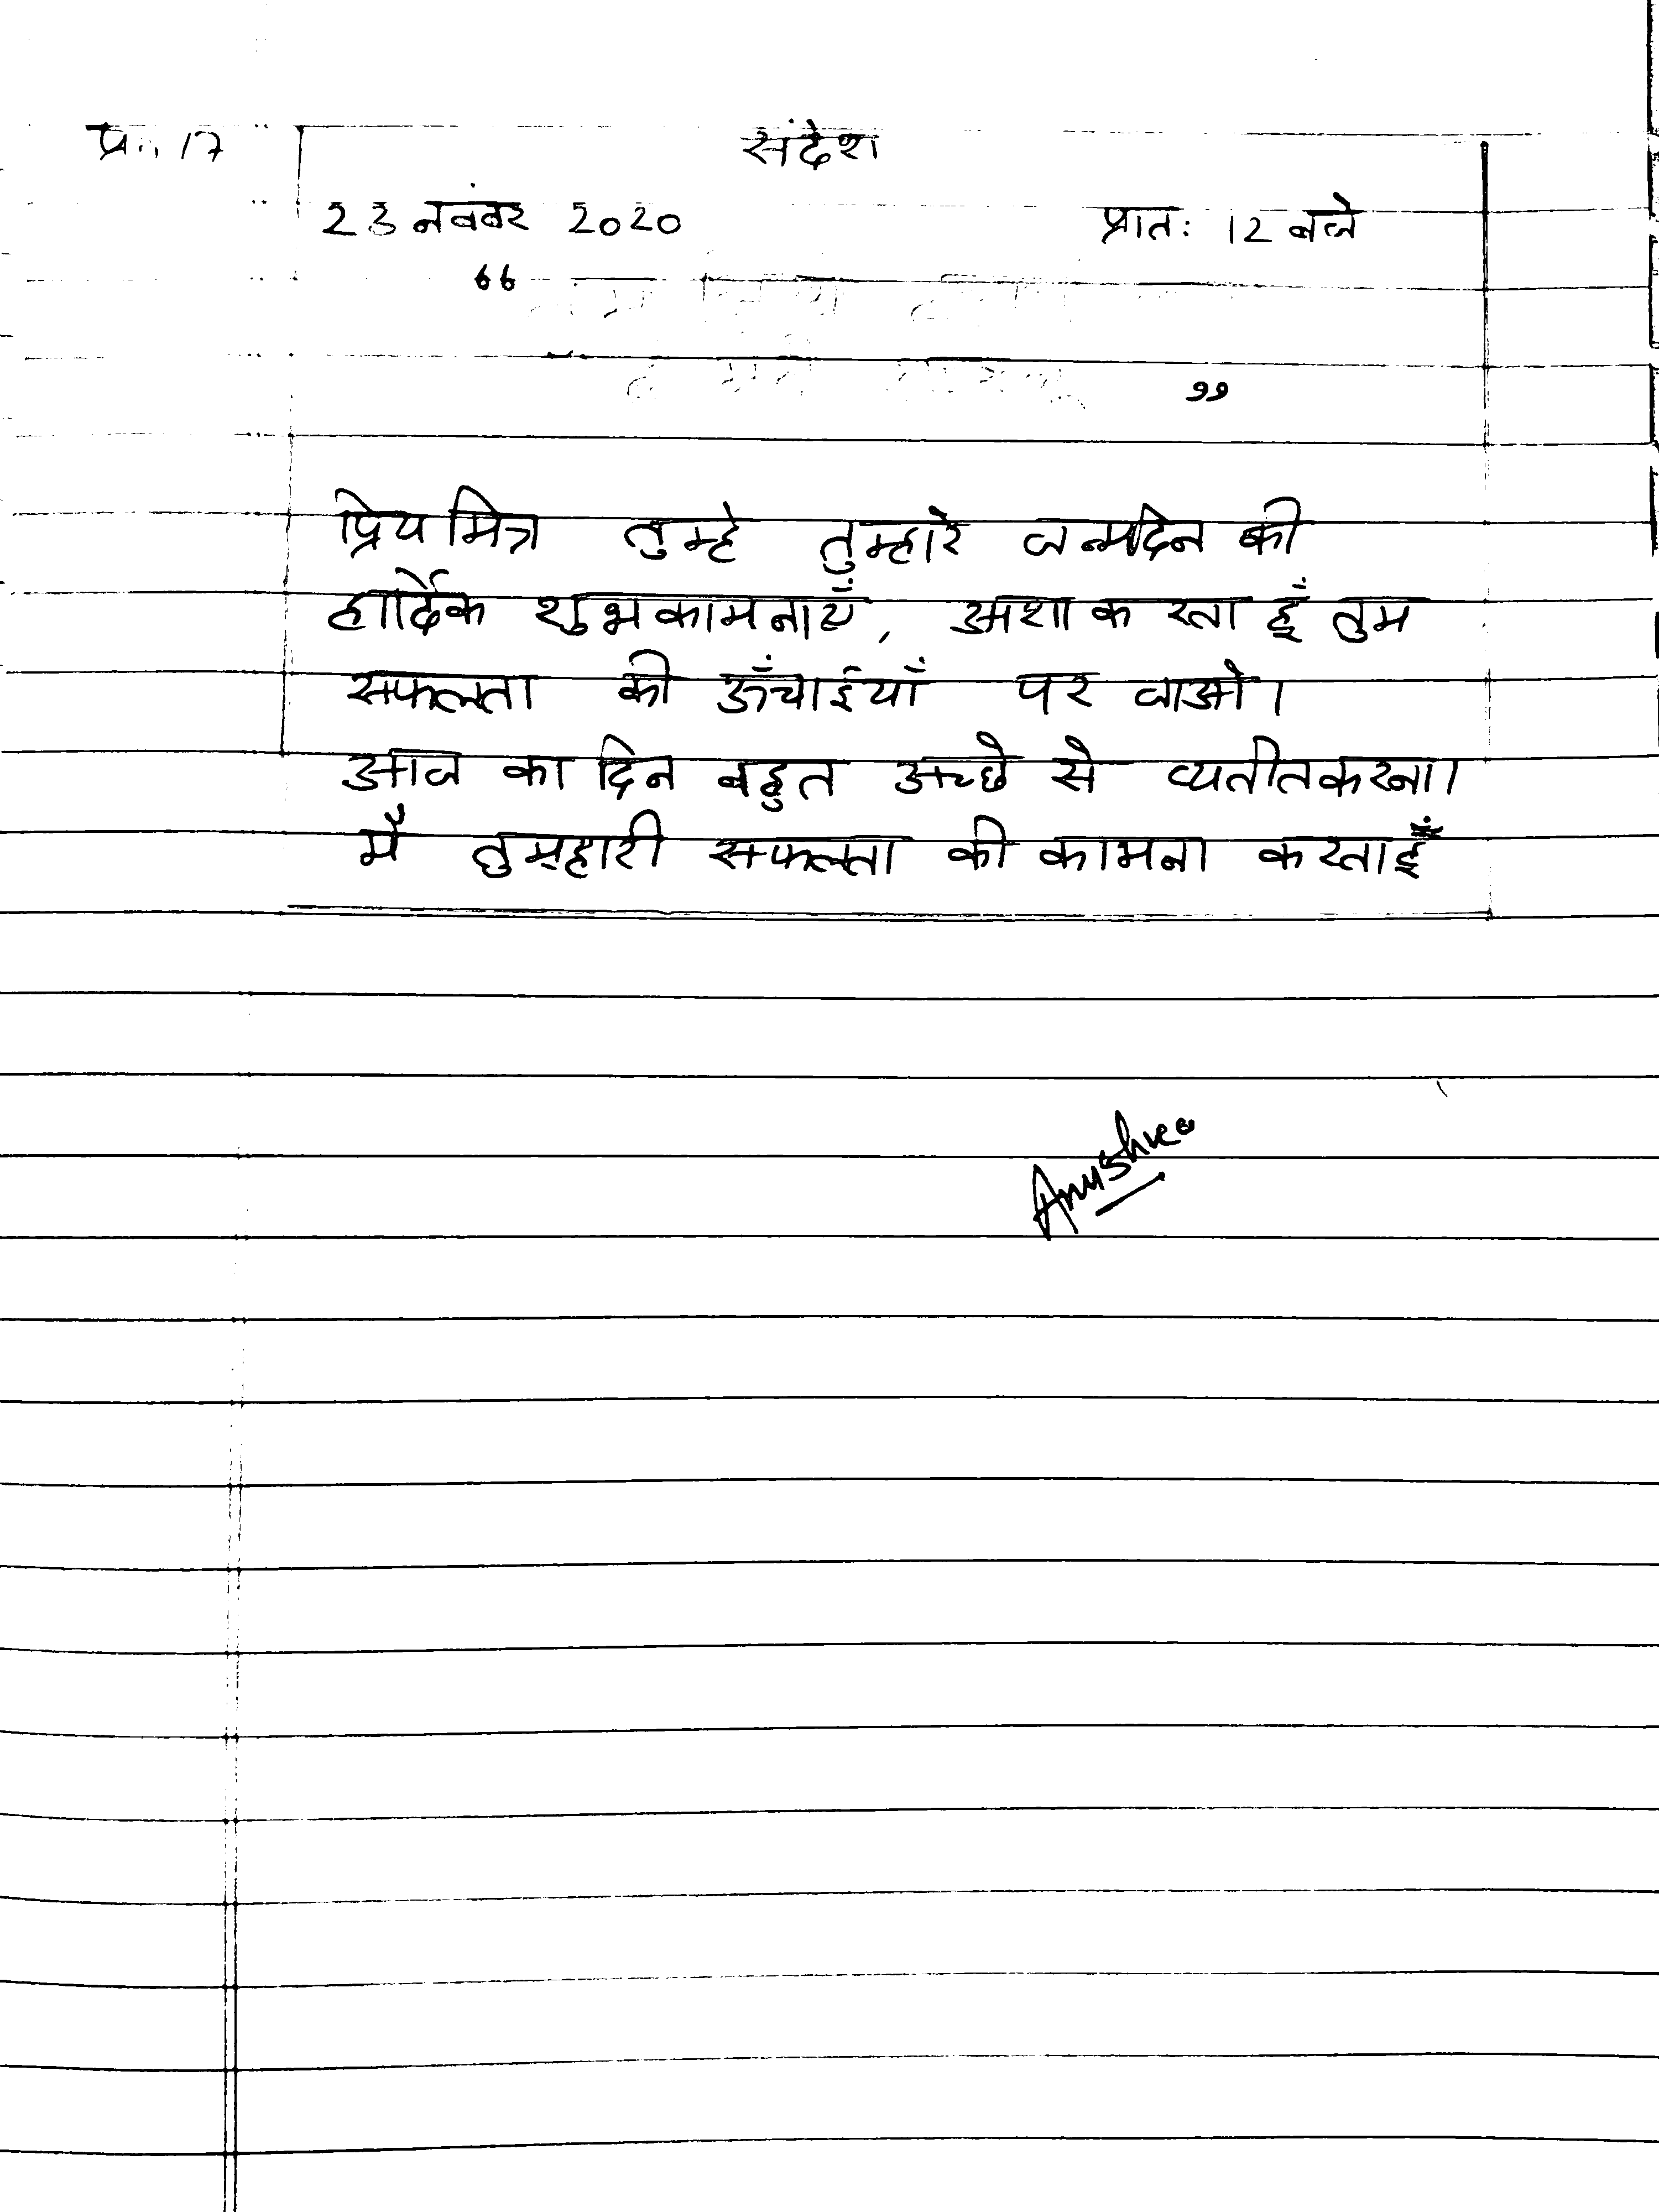 प्र॰ 17
संदेश
23 नवंबर 2020 प्रातः 12 बजे
“
”
प्रिय मित्र तुम्हे तुम्हारे जन्मदिन की
हार्दिक शुभकामनाएँ, आशा करता हूँ तुम
सफलता की ऊँचाईयाँ पर जाओ।
आज का दिन बहुत अच्छे से व्यतीत करना।
मै तुम्हारी सफलता की कामना करता हूँ
Anushka